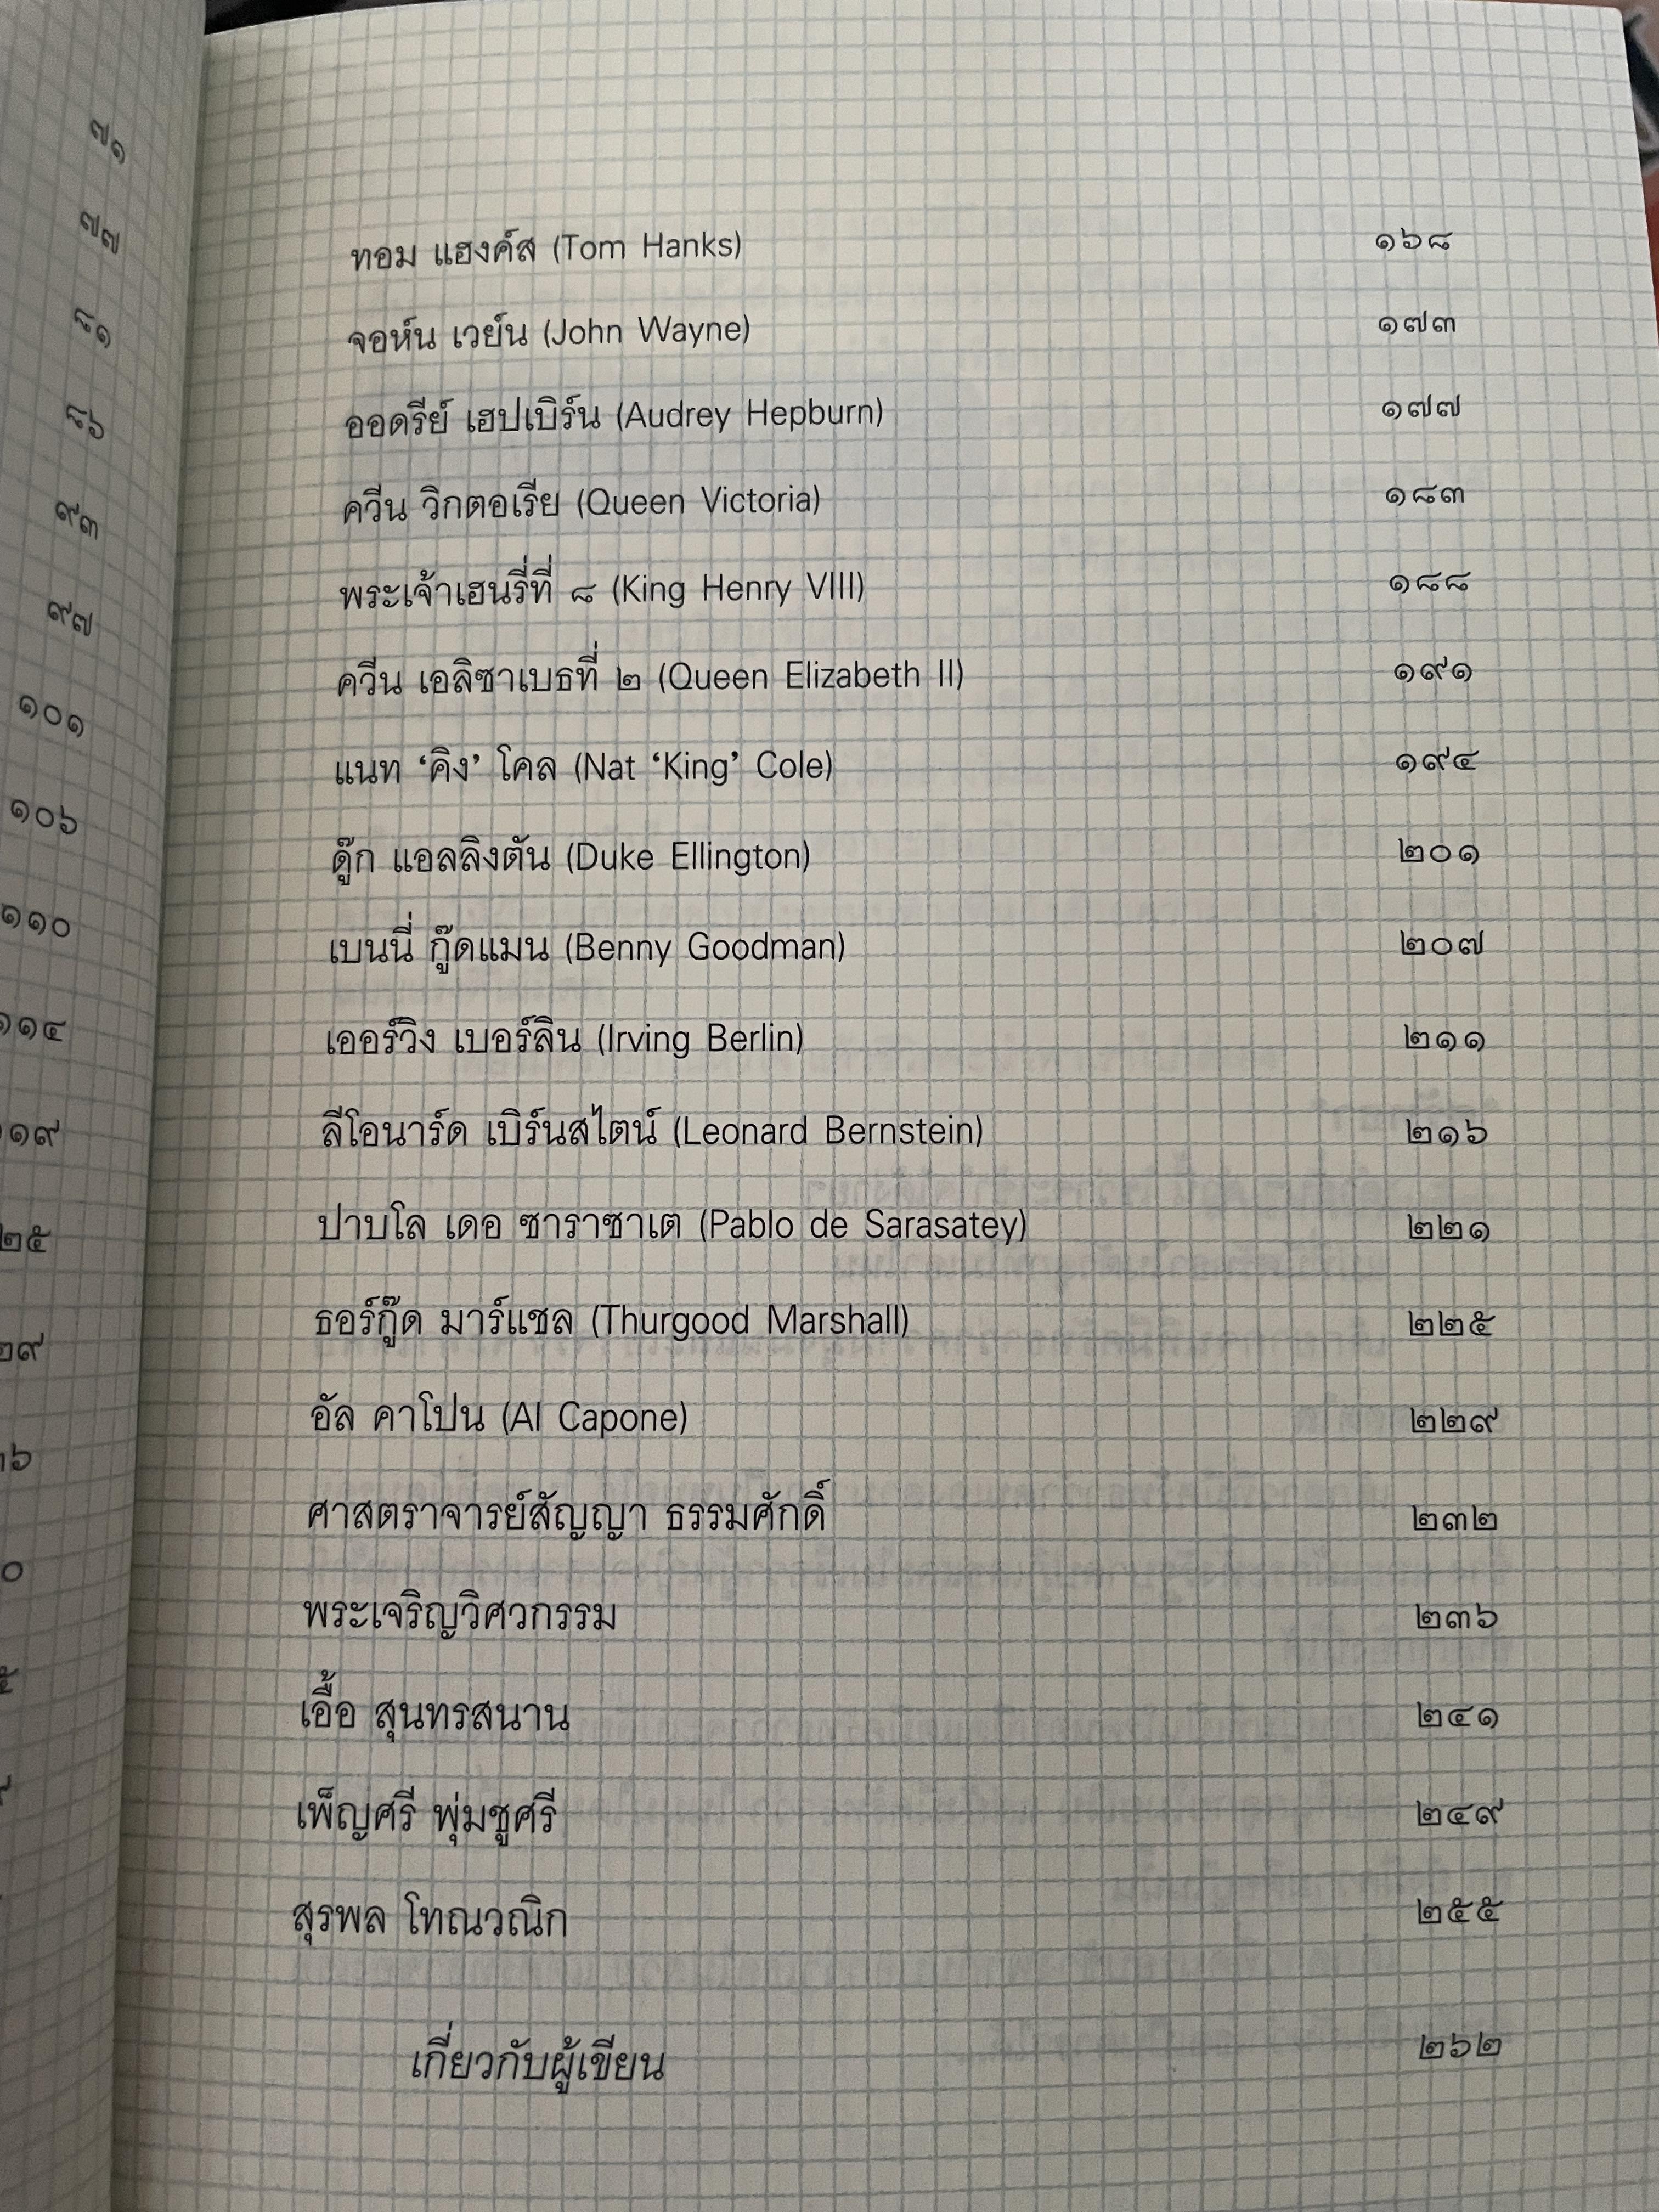 ๗๑
๗๗
๘๑
๘๖
๙๓
๙๗
๑๐๑
๑๐๖
๑๑๐
๑๑๔
๑๑๙
๒๕
๒๙
๖
๐
ทอม แฮงค์ส (Tom Hanks) ๑๖๘
จอห์น เวย์น (John Wayne) ๑๗๓
ออดรีย์ เฮปเบิร์น (Audrey Hepburn) ๑๗๗
ควีน วิกตอเรีย (Queen Victoria) ๑๘๓
พระเจ้าเฮนรี่ที่ ๘ (King Henry VIII) ๑๘๘
ควีน เอลิซาเบธที่ ๒ (Queen Elizabeth II) ๑๙๑
แนท ‘คิง’ โคล (Nat ‘King’ Cole) ๑๙๔
ดู๊ก แอลลิงตัน (Duke Ellington) ๒๐๑
เบนนี่ กู๊ดแมน (Benny Goodman) ๒๐๗
เออร์วิง เบอร์ลิน (Irving Berlin) ๒๑๑
ลีโอนาร์ด เบิร์นสไตน์ (Leonard Bernstein) ๒๑๖
ปาบโล เดอ ซาราซาเต (Pablo de Sarasatey) ๒๒๑
ธอร์กู๊ด มาร์แชล (Thurgood Marshall) ๒๒๕
อัล คาโปน (Al Capone) ๒๒๙
ศาสตราจารย์สัญญา ธรรมศักดิ์ ๒๓๒
พระเจริญวิศวกรรม ๒๓๖
เอื้อ สุนทรสนาน ๒๔๑
เพ็ญศรี พุ่มชูศรี ๒๔๙
สุรพล โทณวณิก ๒๕๕
เกี่ยวกับผู้เขียน ๒๖๒